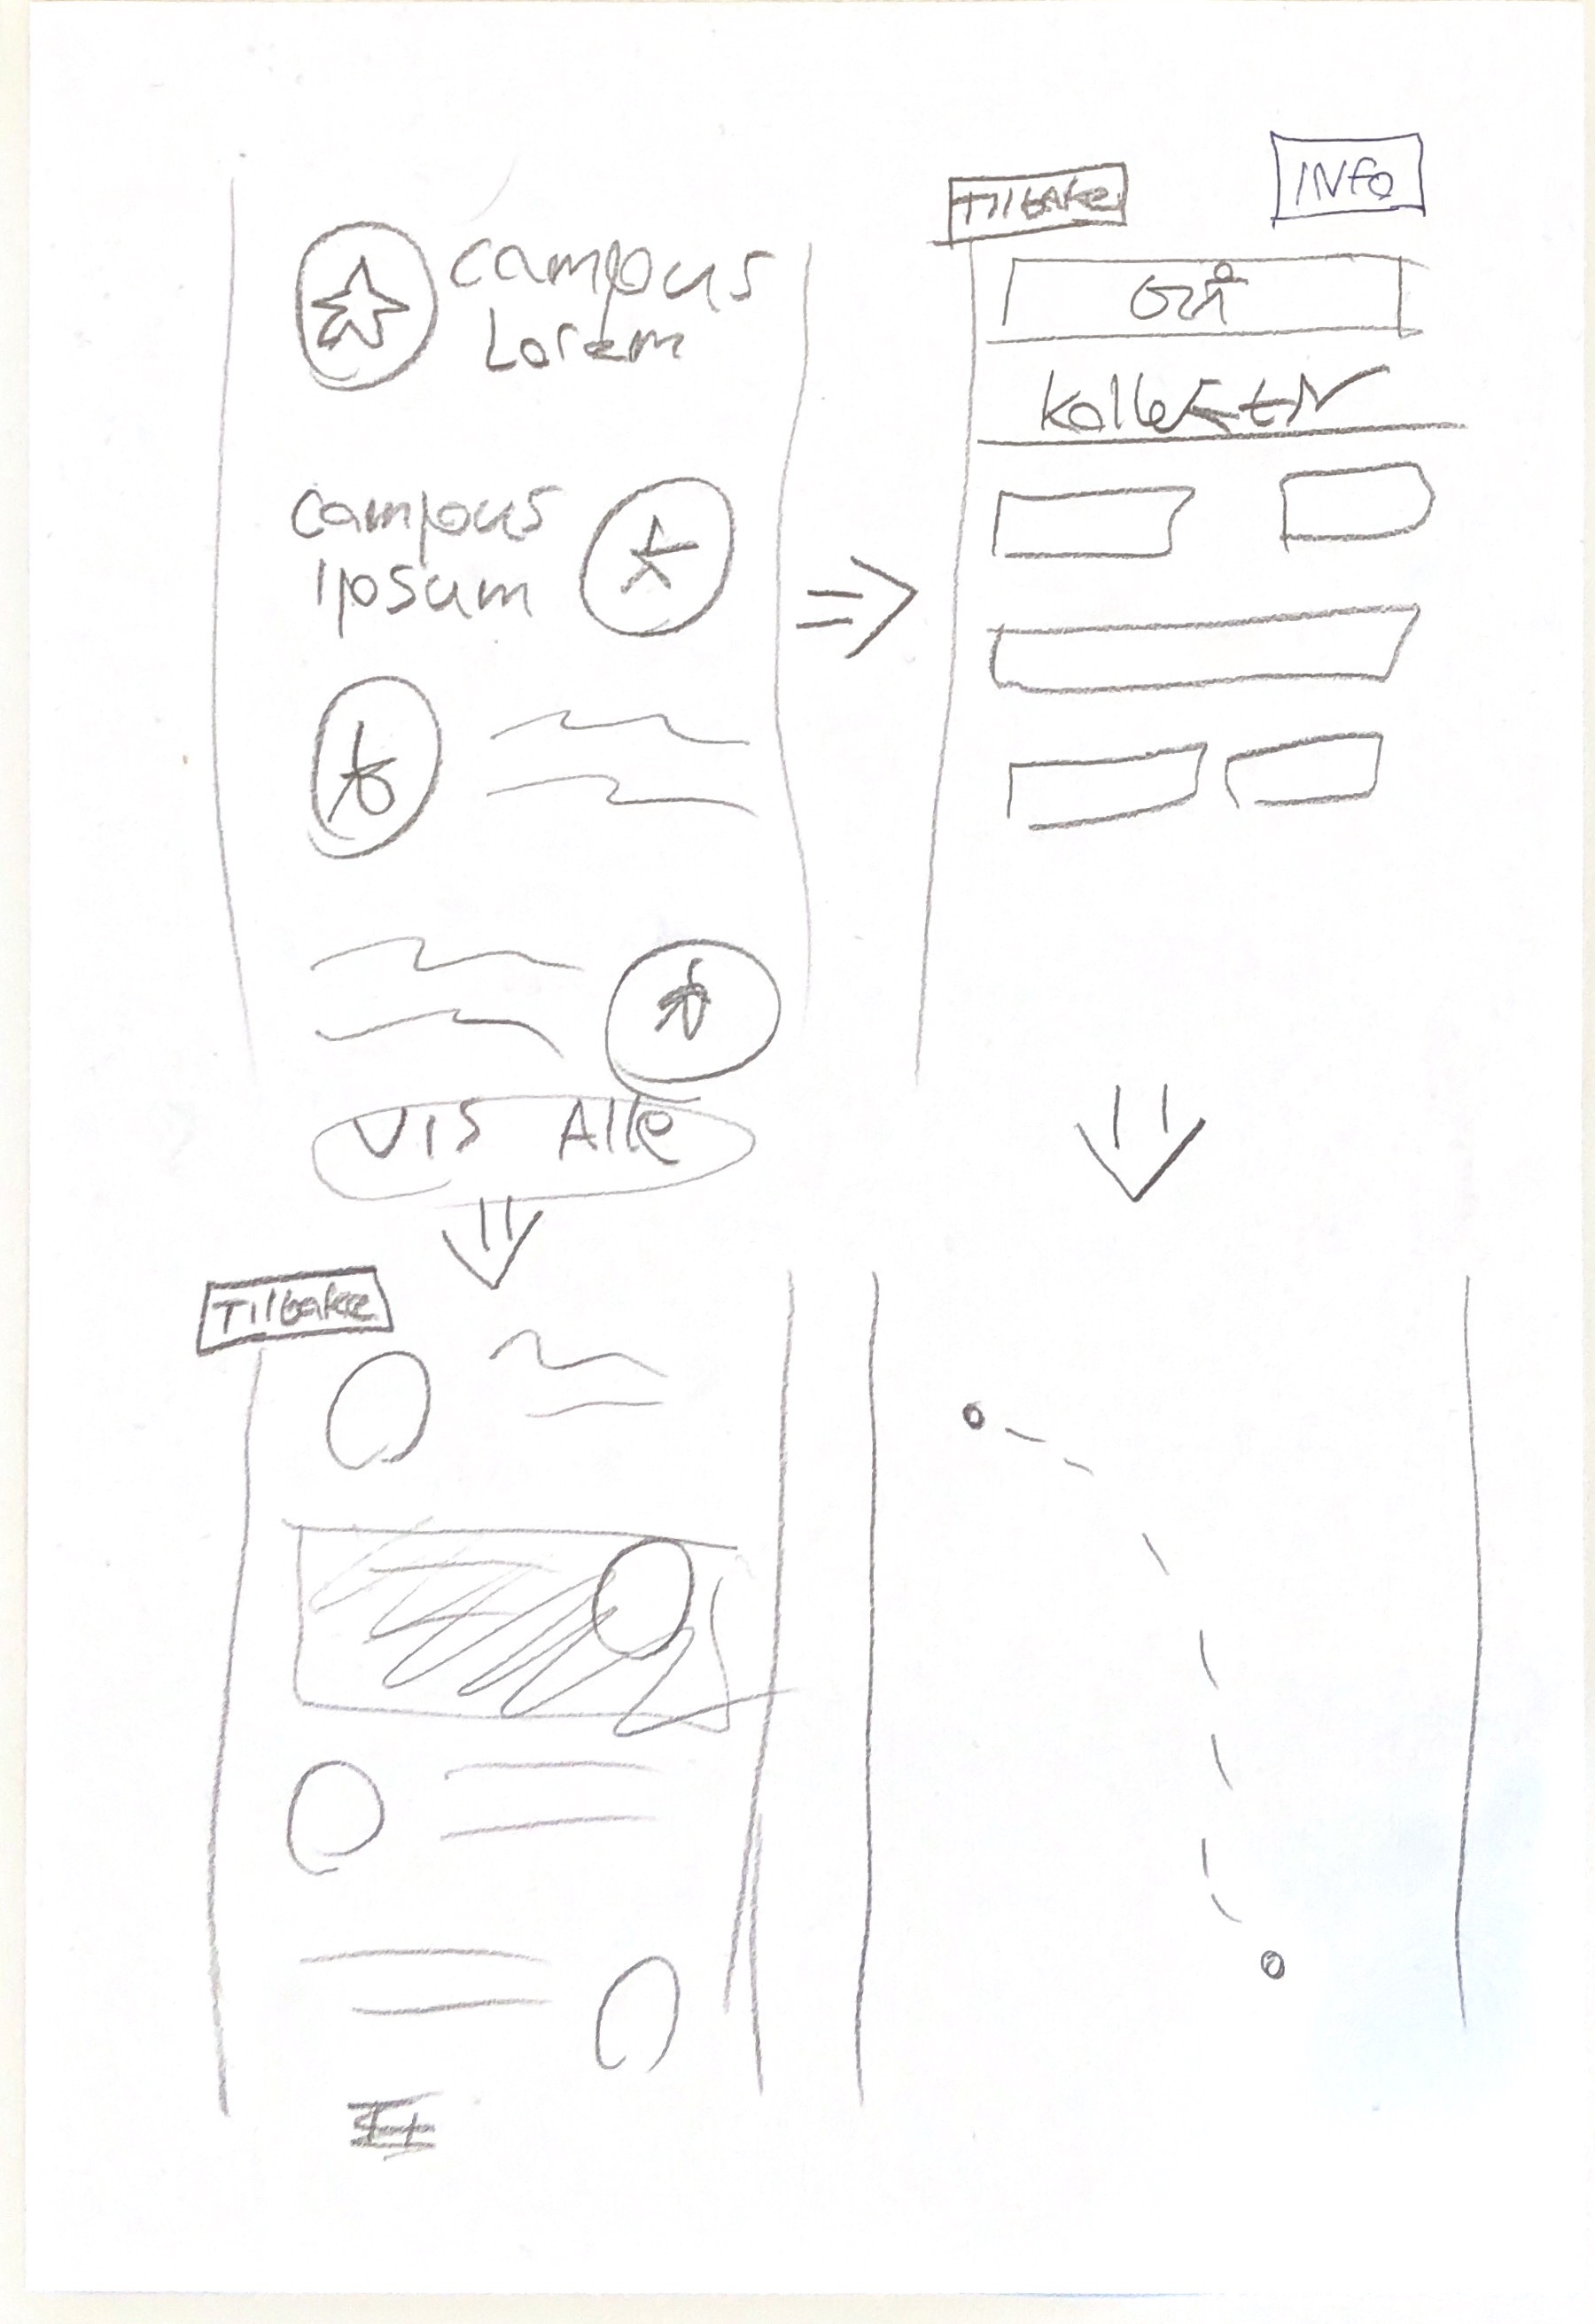 campus
Lorem
campus
Ipsum
VIS Alle
Tilbake
INFO
Gå
Kollektiv
Tilbake